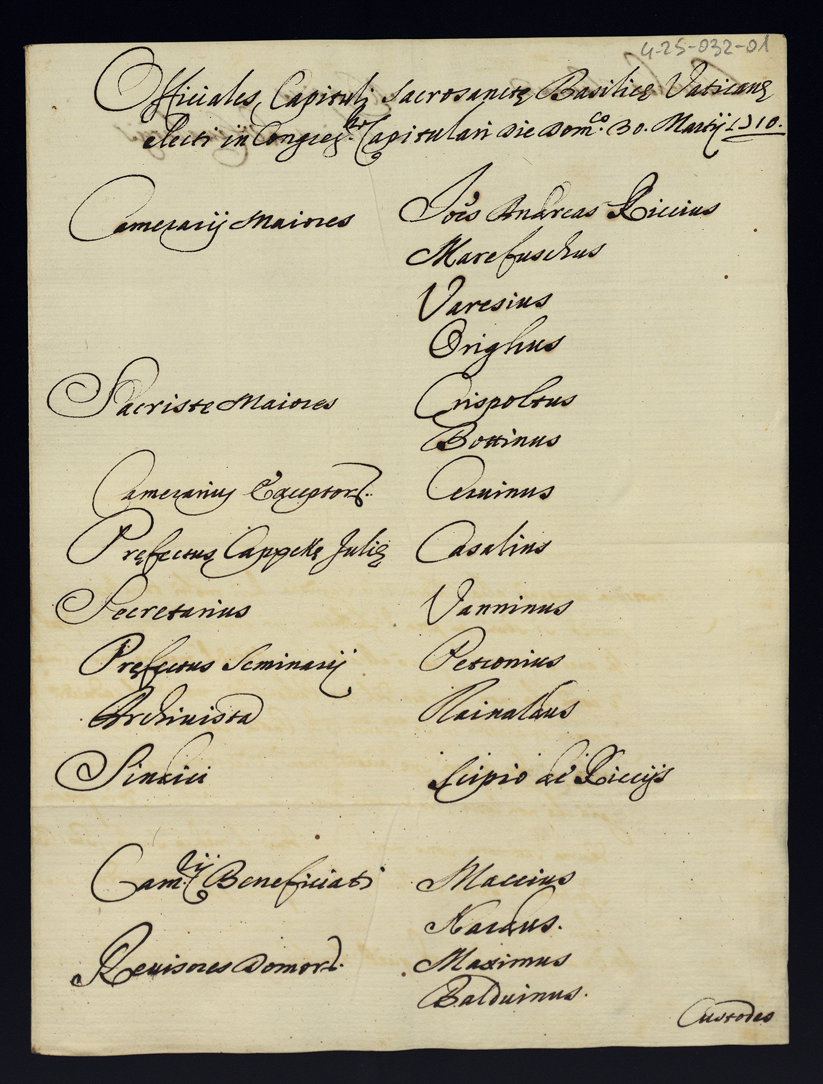 4-25-032-01
Officiales Capituli Sacrosanctę Basilicę Vaticanę
electi in Congreg.ne Capitulari die Dom.co 30. Martij 1710.
Camerarij Maiores Joẽs Andreas Riccius
Marefuschus
Varesius
Orighus
Sacristę Maiores Crispoltus
Bottinus
Camerarius Exceptor. Ceruinus
Pręfectus Cappellę Julię Casalius
Secretarius Vanninus
Pręfectus Seminarij Petronius
Archiuista Rainaldus
Sindici Scipio de Riccijs
Cam.rij Beneficiati Maccius
Nardus.
Reuisores Domor. Maximus
Balduinus.
Custodes